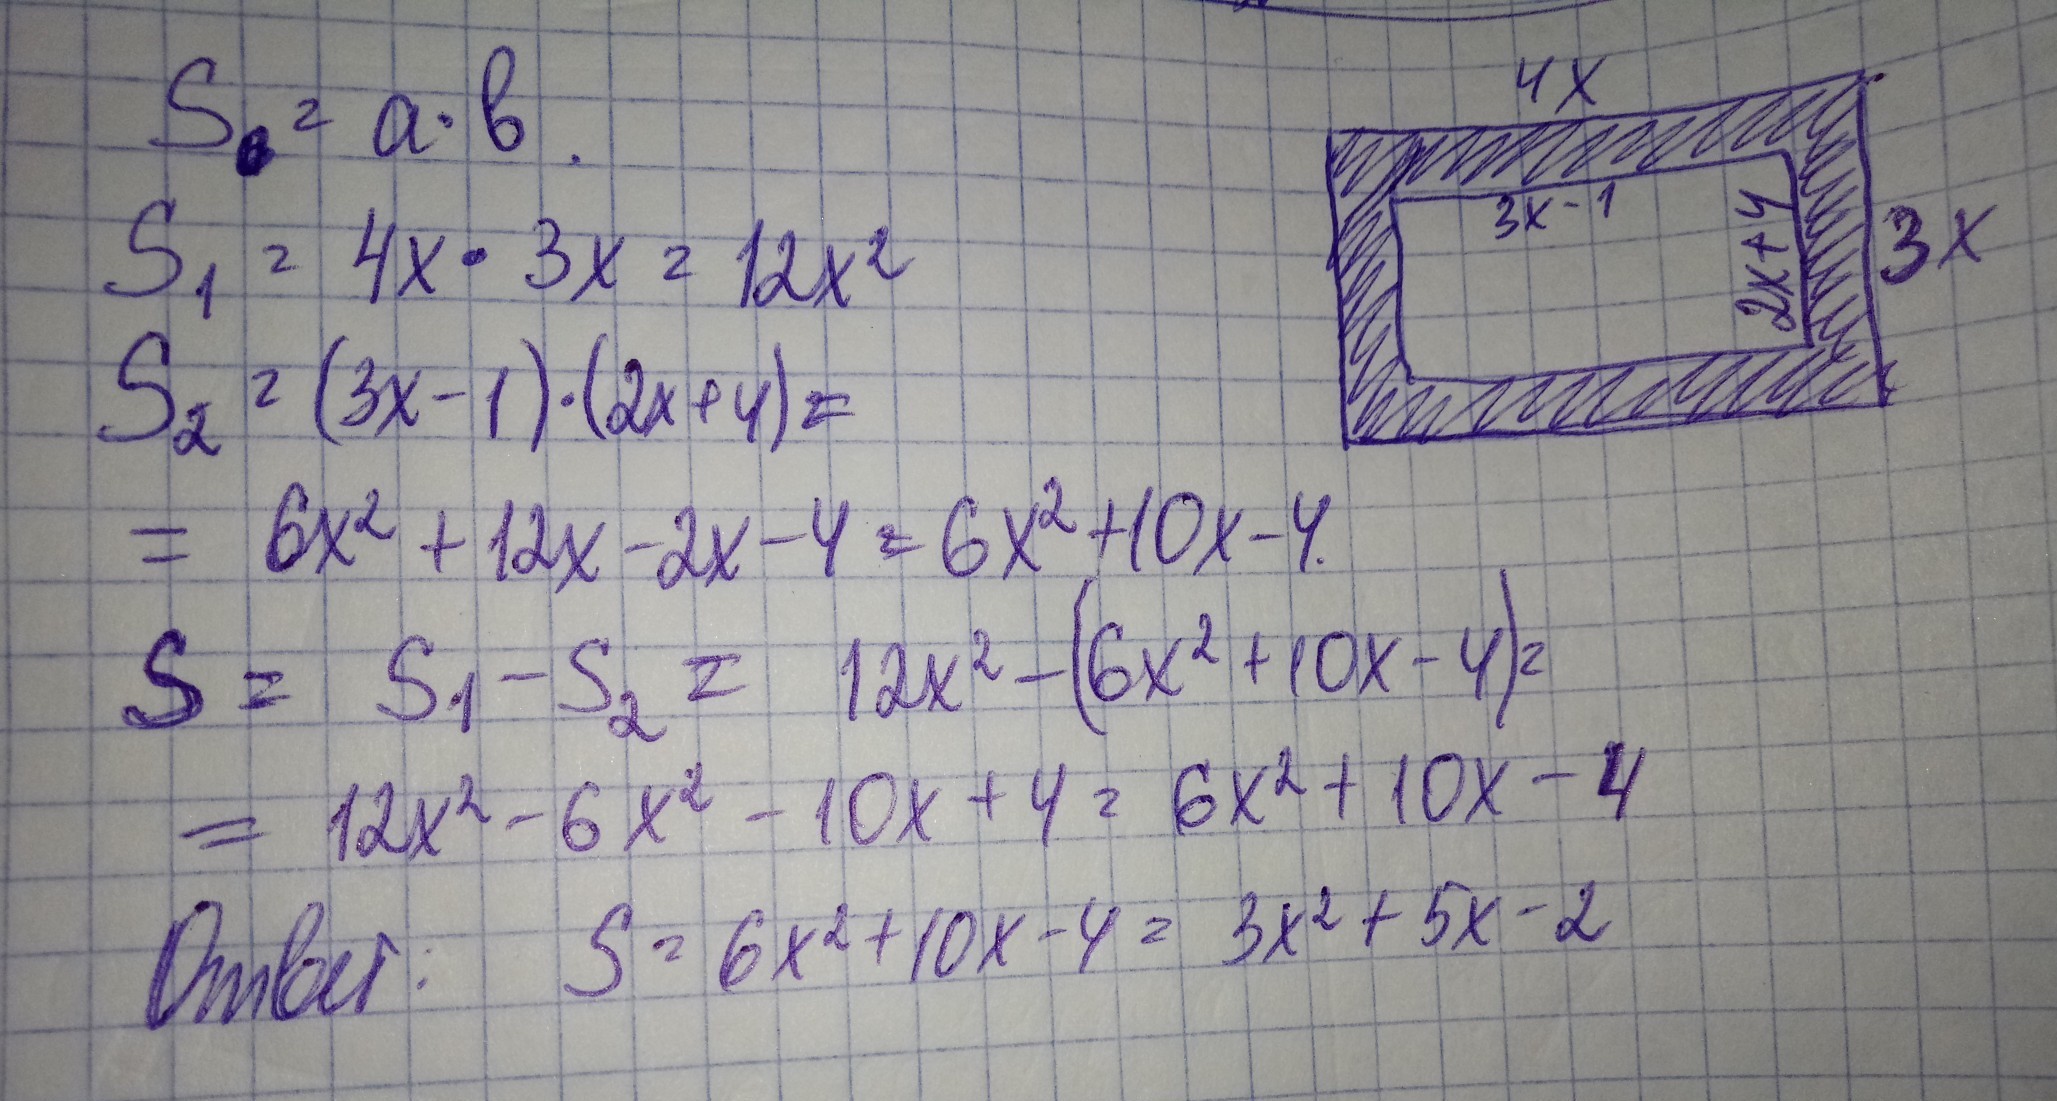 S = a·b.
S₁ = 4x · 3x = 12x²
S₂ = (3x-1)·(2x+4) =
= 6x² + 12x - 2x - 4 = 6x² + 10x - 4.
S = S₁ - S₂ = 12x² - (6x² + 10x - 4) =
= 12x² - 6x² - 10x + 4 = 6x² + 10x - 4
Ответ: S = 6x² + 10x - 4 = 3x² + 5x - 2
4x
3x-1
2x+4
3x